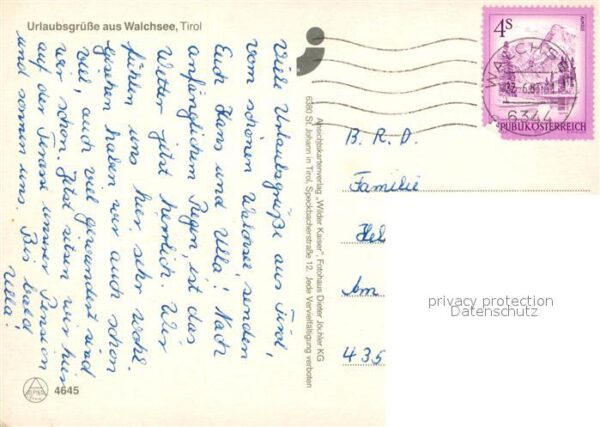 Urlaubsgrüße aus Walchsee, Tirol
Viele Urlaubsgrüße aus Tirol,
vom schönen Walchsee senden
Euch Hans und Ulla! Nach
anfänglichem Regen, ist das
Wetter jetzt herrlich. Wir
fühlen uns hier sehr wohl.
Gesehen haben wir auch schon
viel, auch viel gewandert sind
wir schon. Jetzt sitzen wir hier
auf der Terasse unserer Pension
und sonnen uns. Bis bald
Ulla!
4645
Ansichtskartenverlag „Wilder Kaiser“, Fotohaus Dieter Jöchler KG
6380 St. Johann in Tirol, Speckbacherstraße 12. Jede Vervielfältigung verboten
4S
WALCHSEE
6344
REPUBLIK ÖSTERREICH
B. R. D.
Familie
Hel
Am
435
privacy protection
Datenschutz